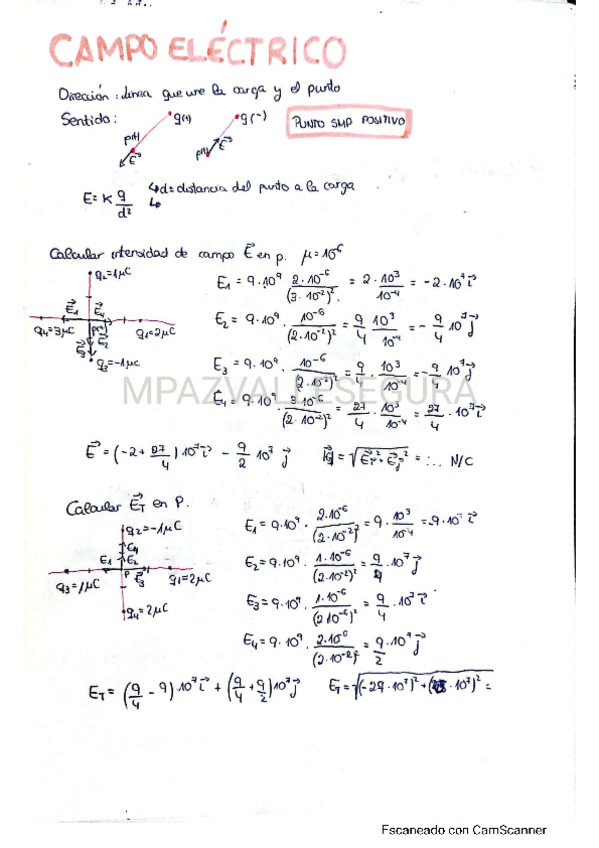 CAMPO ELÉCTRICO
Dirección: línea que une la carga y el punto
Sentido: p(+) E⃗ q(+) p(+) E⃗ q(-) PUNTO SMP POSITIVO
E = K q/d² ↳ d = distancia del punto a la carga
Calcular intensidad de campo E⃗ en p. μ = 10⁻⁶
q₂=1μC
q₄=3μC E⃗₁ E⃗₄ P(+) E⃗₂ q₁=2μC
q₃=-1μC
E₁ = 9·10⁹ 2·10⁻⁶/(3·10⁻²)² = 2·10³/10⁻⁴ = -2·10⁷ i⃗
E₂ = 9·10⁹· 10⁻⁶/(2·10⁻²)² = 9/4 10³/10⁻⁴ = - 9/4 10⁷ j⃗
E₃ = 9·10⁹· 10⁻⁶/(2·10⁻²)² = 9/4 · 10³/10⁻⁴ = - 9/4 10⁷ j⃗
MPAZVALLESEGURA
E₄ = 9·10⁹· 3·10⁻⁶/(2·10⁻²)² = 27/4 · 10³/10⁻⁴ = 27/4 · 10⁷ i⃗
E⃗ = (-2 + 27/4) 10⁷ i⃗ - 9/2 10⁷ j⃗ = √ = ... N/C
Calcular E⃗T en P.
q₂=-1μC
E₄
E₁ E₂
P E⃗₃ q₁=2μC
q₃=1μC
q₄=2μC
E₁ = 9·10⁹· 2·10⁻⁶/(2·10⁻²)² = 9· 10³/10⁻⁴ = -9·10⁷ i⃗
E₂ = 9·10⁹· 1·10⁻⁶/(2·10⁻²)² = 9/4 ·10⁷ j⃗
E₃ = 9·10⁹· 1·10⁻⁶/(2·10⁻⁶)² = 9/4 · 10⁷ i⃗
E₄ = 9·10⁹· 2·10⁻⁶/(2·10⁻²)² = 9/2 ·10⁷ j⃗
ET = (9/4 - 9) 10⁷ i⃗ + (9/4 + 9/2) 10⁷ j⃗ ET = √(-29·10⁷)² + ( ·10⁷)² =
Escaneado con CamScanner